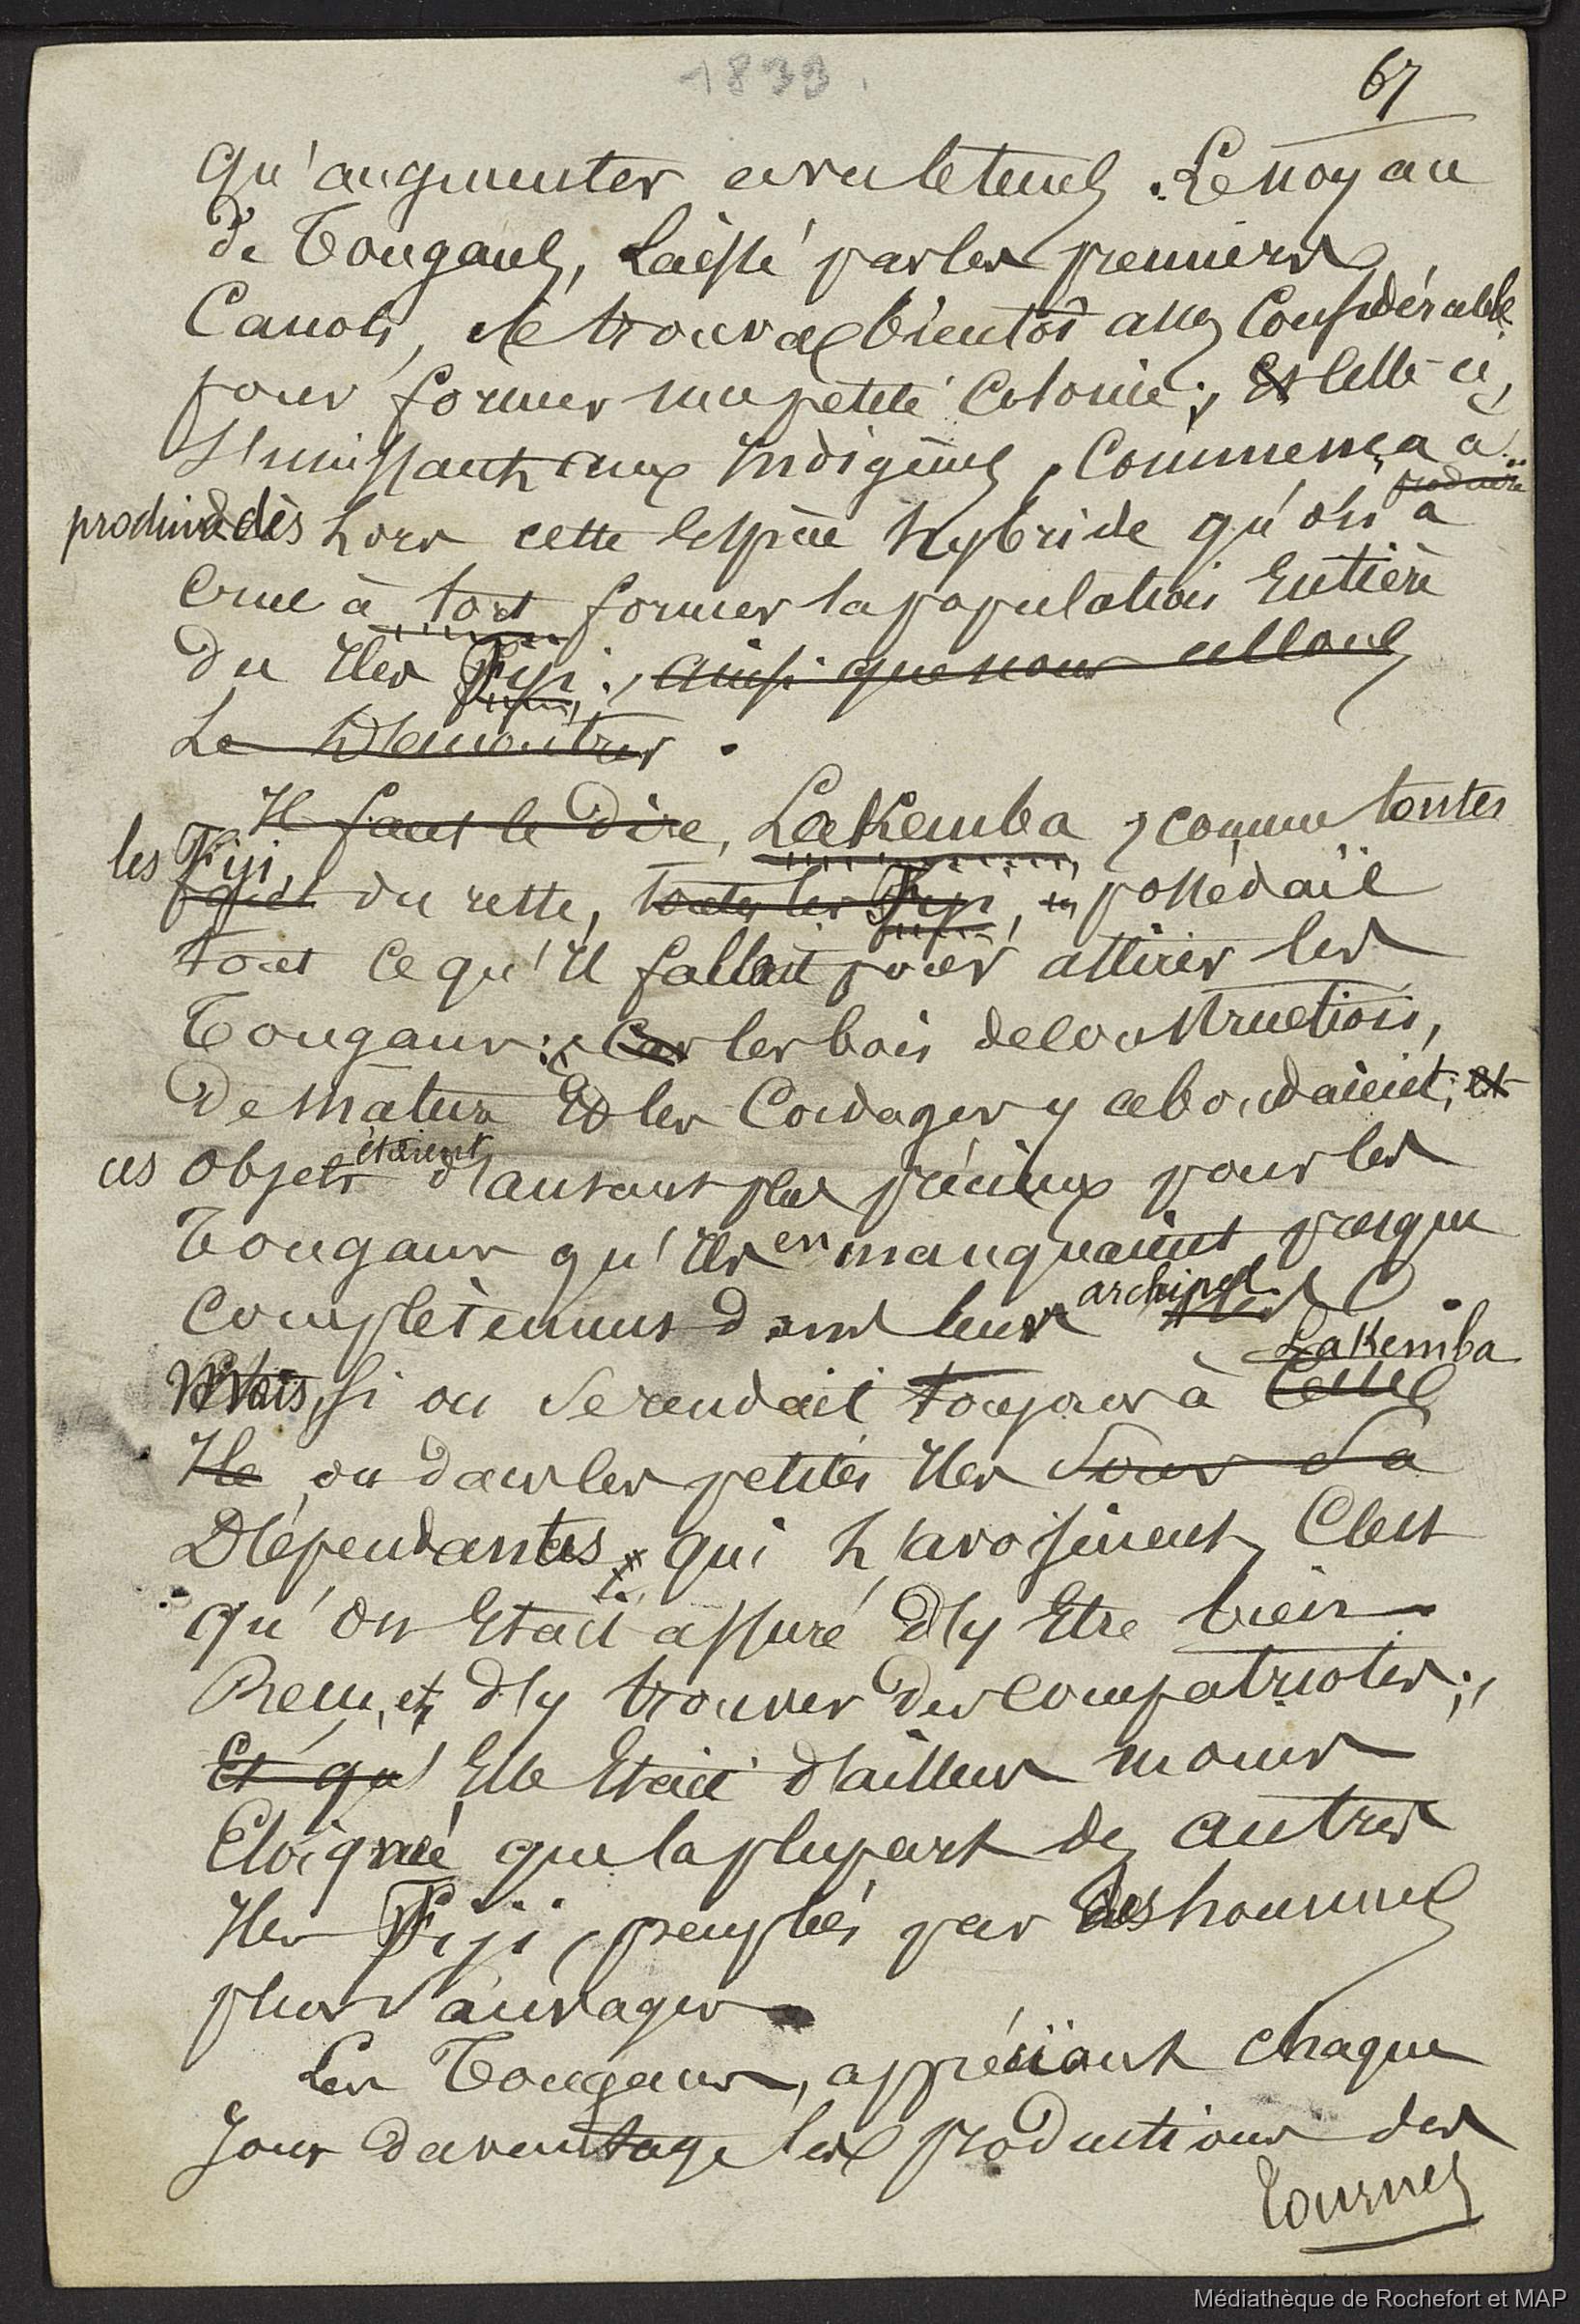 1833.
67
qu'augmenter avec le tems. Le noyau
de Tongans, laissé par les premiers
Canots, se trouva bientot assez Considérable
pour former une petite Colonie; Et Celle-ci,
S'unissant aux Indigènes, Commença à
produire
produire dès lors cette Espèce hybride qu'on a
crue à tort former la population Entière
des Iles Fiji; ainsi que nous allons
Le Démontrer.
Il faut le dire, Lakemba, comme toutes
les Fiji,
du reste, toutes les Fiji, possédait
tout ce qu'il fallait pour attirer les
Tongans: Car les bois de Construction,
De mâture Et les Cordages y abondaient; et
ces objets étaient d'autant plus précieux pour les
Tongans qu'ils en manquaient presque
Complètement dans leur archipel.
Mais, si on Se rendait toujours à Cette Lakemba
Ile ou dans les petites Iles Sous Sa
Dépendantes qui l'avoisinent, C'est
qu'on Etait assuré d'y Etre bien
Reçu, et d'y trouver des Compatriotes;
Et qu'Elle Etait d'ailleurs moins
Eloignée que la plupart des autres
Iles Fiji, peuplées par des hommes
plus Sauvages.
Les Tongans, appréciant chaque
Jour davantage les productions des
Tournez
Médiathèque de Rochefort et MAP